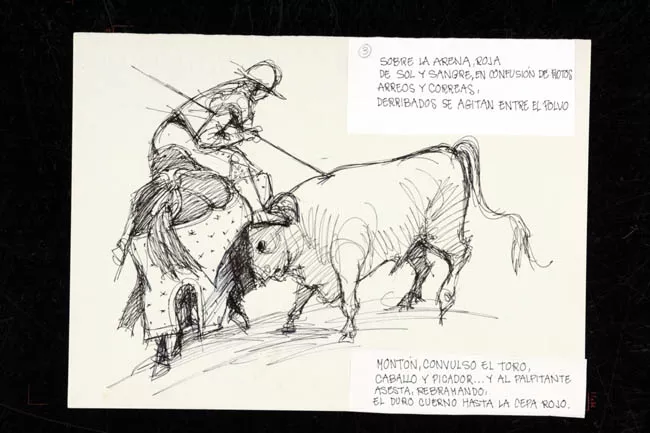 3
SOBRE LA ARENA, ROJA
DE SOL Y SANGRE, EN CONFUSIÓN DE ROTOS
ARREOS Y CORREAS,
DERRIBADOS SE AGITAN ENTRE EL POLVO
MONTÓN, CONVULSO EL TORO,
CABALLO Y PICADOR... Y AL PALPITANTE
ASESTA, REBRAMANDO,
EL DURO CUERNO HASTA LA CEPA ROJO.